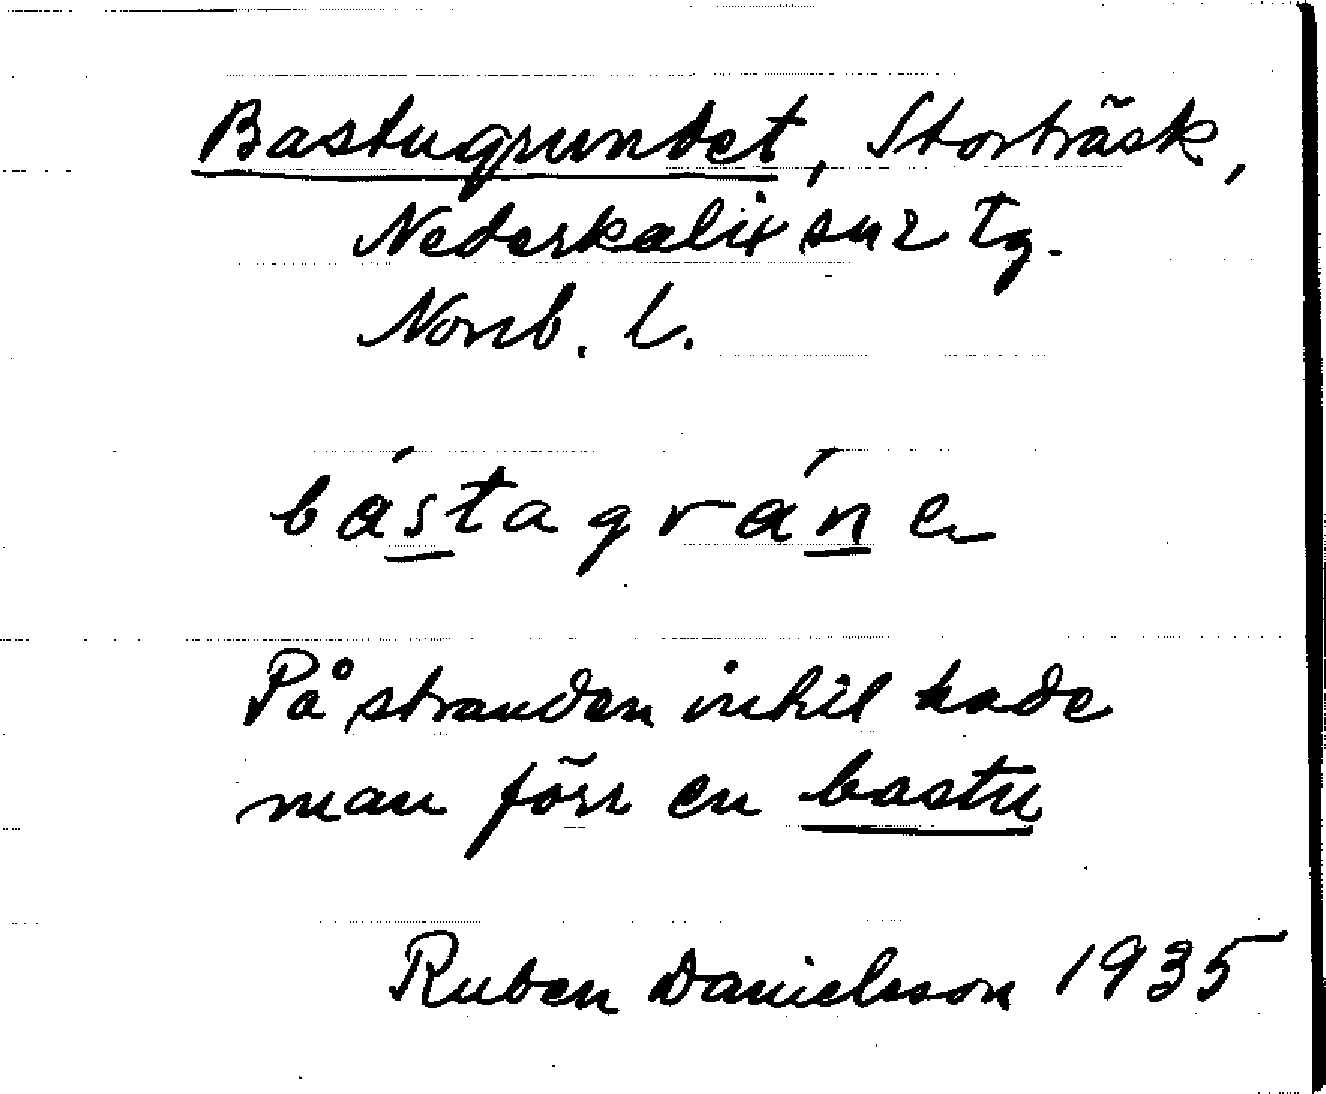 Bastugrundet, Storträsk,
Nederkalix sn 2 tg.
Norrb. l.
bástagráne
På stranden intill hade
man förr en bastu
Ruben Danielsson 1935